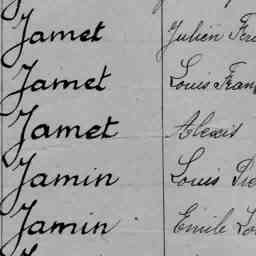 Jamet Julien
Jamet Louis
Jamet Alexis
Jamin Louis
Jamin Emile